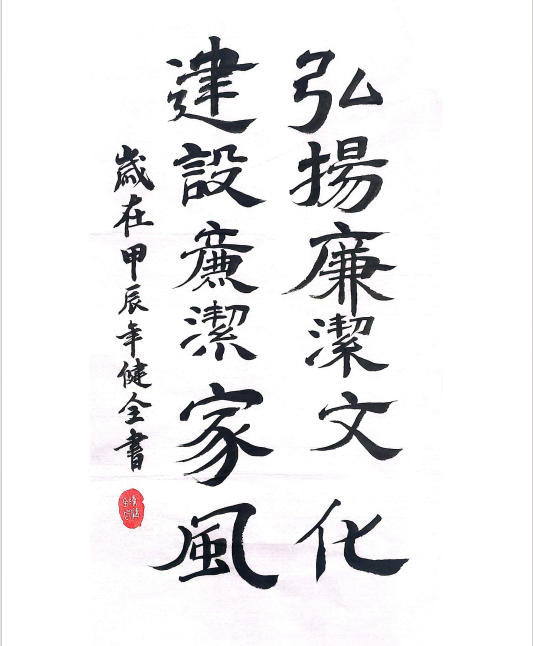 弘揚廉潔文化
建設廉潔家風
歲在甲辰年健全書